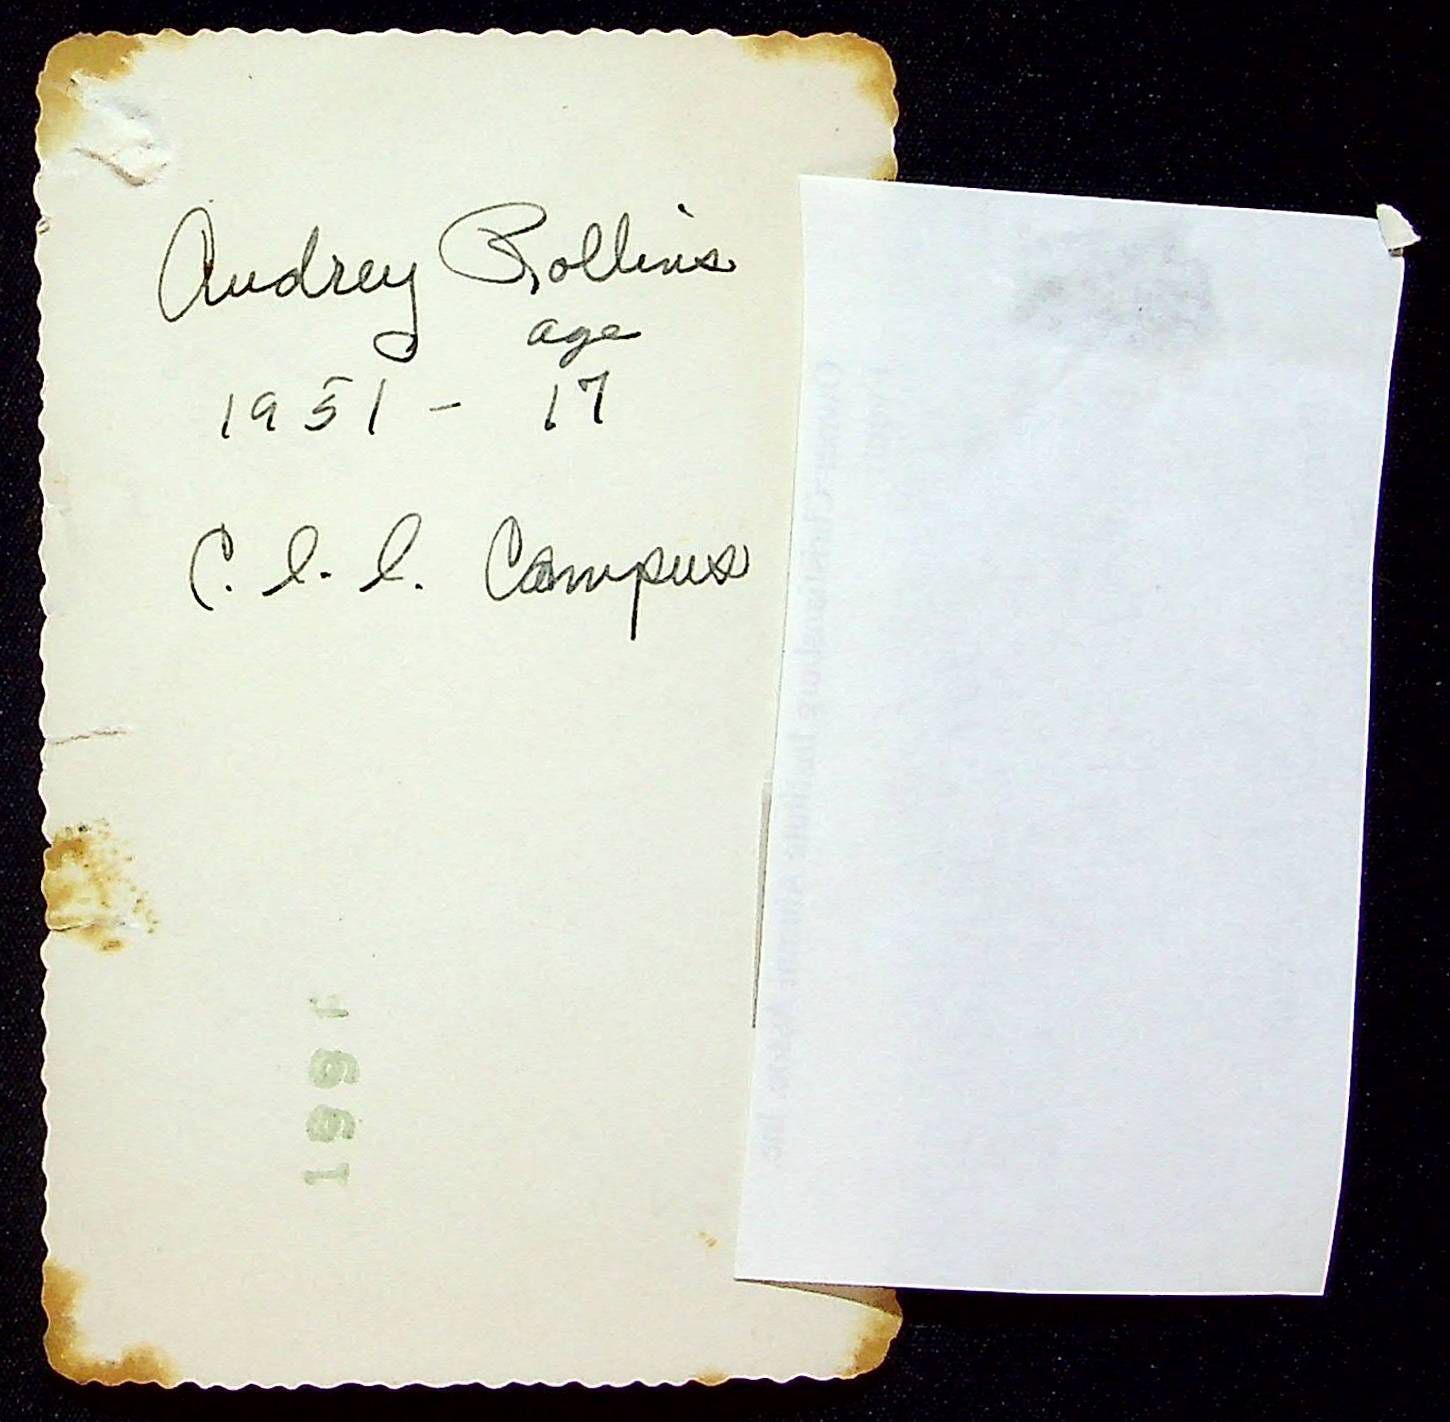 Audrey Rollins
age
1951 - 17
C. l. l. Campus